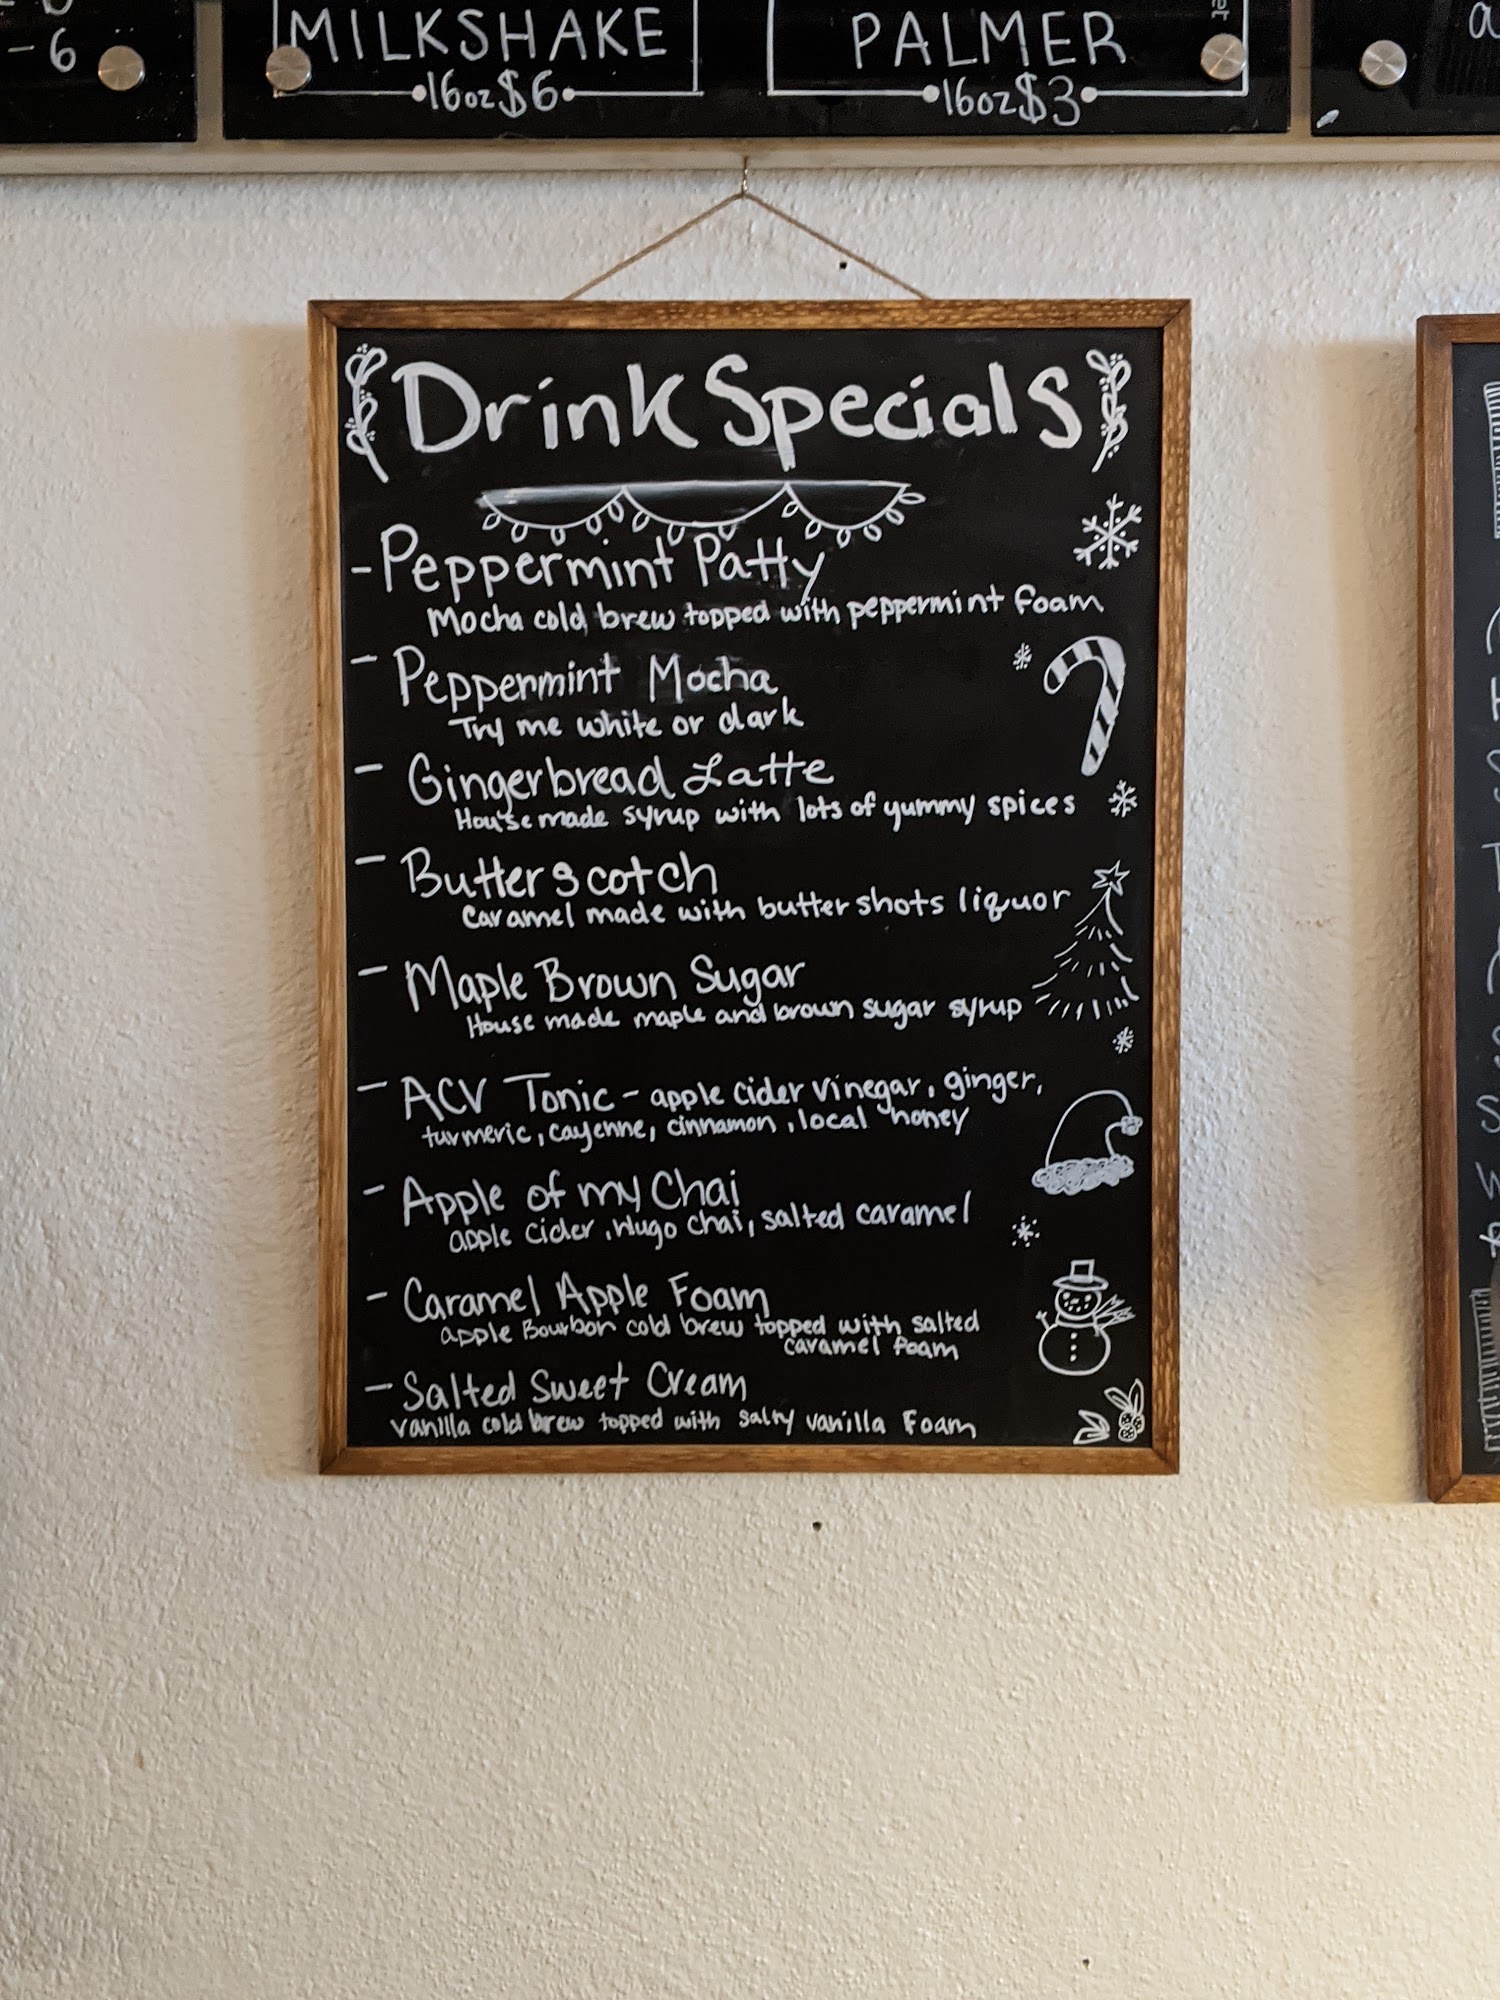 - 6
MILKSHAKE
16oz $6
PALMER
16oz $3
et
Drink Specials
- Peppermint Patty
Mocha cold brew topped with peppermint foam
- Peppermint Mocha
Try me white or dark
- Gingerbread Latte
House made syrup with lots of yummy spices
- Butterscotch
Caramel made with butter shots liquor
- Maple Brown Sugar
House made maple and brown sugar syrup
- ACV Tonic - apple cider vinegar, ginger,
turmeric, cayenne, cinnamon, local honey
- Apple of my Chai
apple cider, Hugo chai, salted caramel
- Caramel Apple Foam
apple Bourbon cold brew topped with salted
caramel foam
- Salted Sweet Cream
vanilla cold brew topped with salty vanilla Foam